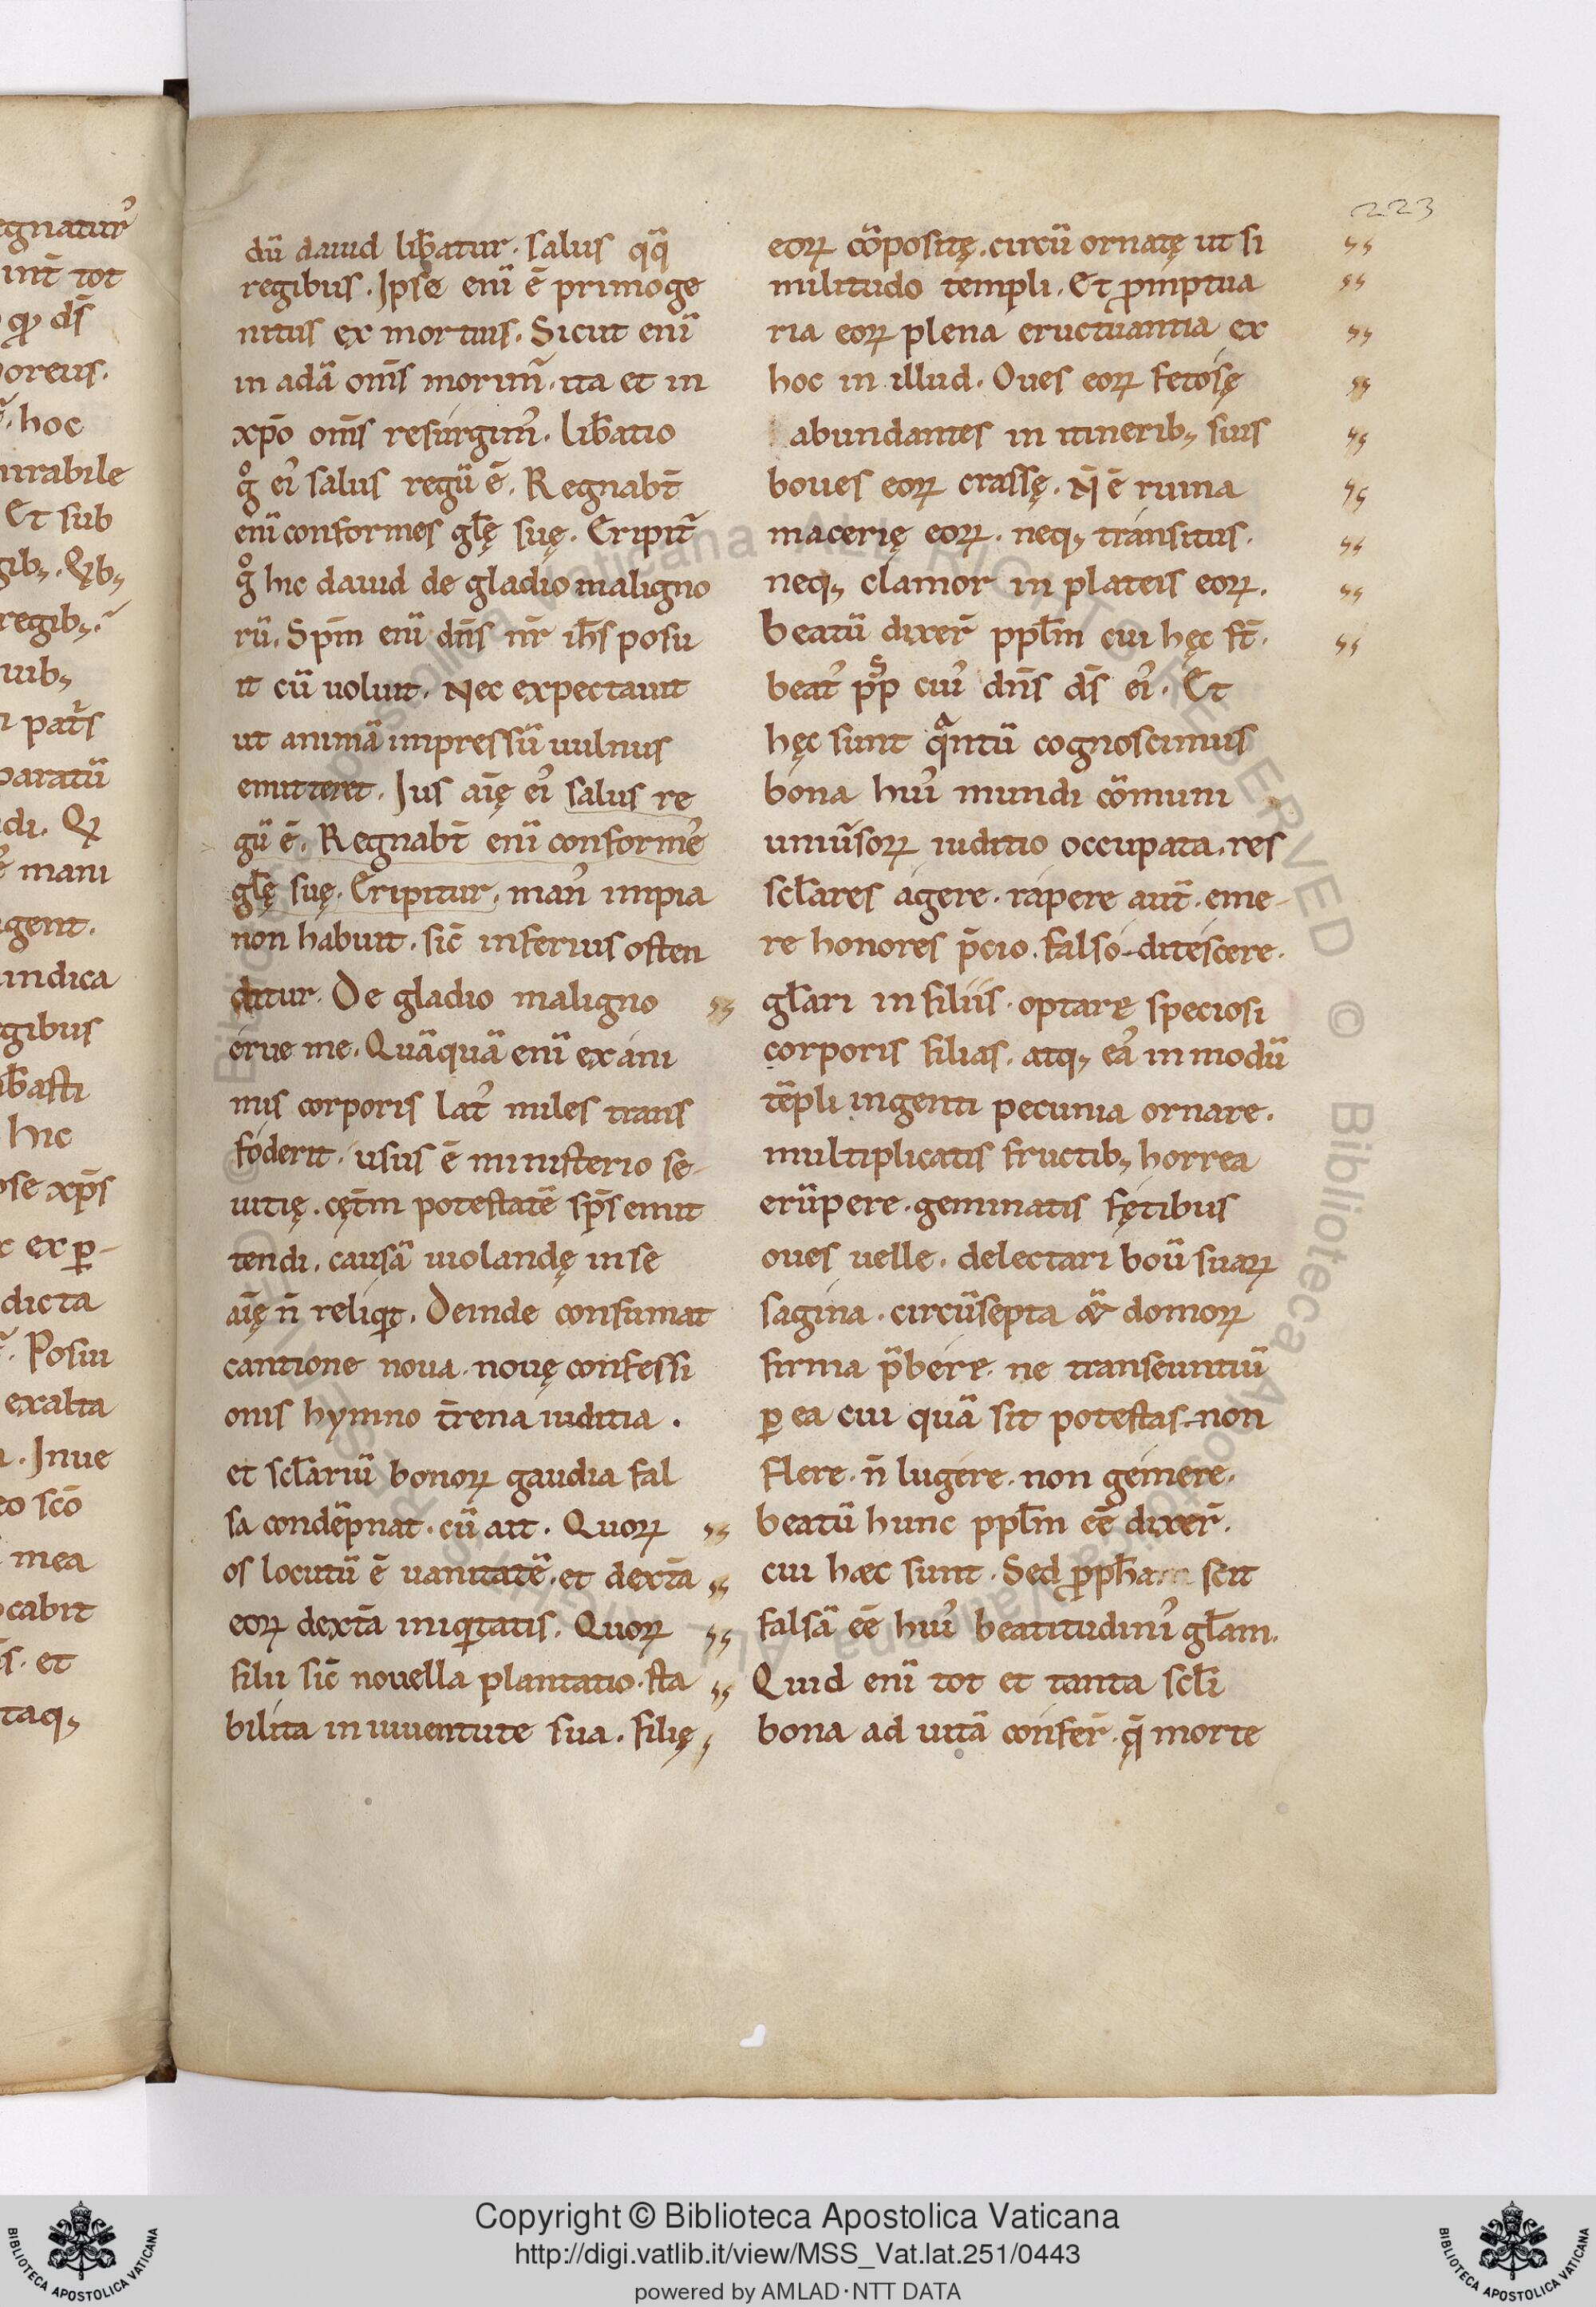 egnatur᾽
int̄ tot
ꝙ ds̄
oreus.
hoc
mirabile
Et sub
gib;. Qͥb;
regib;.
uib;
pat̄s
paratū
di. Qͥ
mani
gent.
indica
gibus
ib̄asti
hic
se xp̄s
ex ꝑ-
dicta
Posui
exalta
. Inue
eo sc̄o
mea
cabit
s. et
taq;
223
dū dauid lib̄atur. salus qͣqͣ
regibus. Ipse enī ē primoge
nitus ex mortuis. Sicut enī
in adā om̄s morim̄. ita et in
xp̄o om̄s resurgim᾽. lib̄atio
gͦ ei᾽ salus regū ē. Regnab̄t
enī conformes gl̄ę suę. Eripit̄
gͦ hic dauid de gladio maligno
rū. Sp̄m enī dn̄s nr̄ ih̄s posu
it cū uoluit. Nec expectauit
ut animā impressū uulnus
emitteret. Ius aīę ei᾽ salus re
gū ē. Regnab̄t enī conforme᾽
gl̄ę suę. Eripitur. man᾽ impia
non habuit. sic̄ inferius osten
ditur. De gladio maligno
erue me. Quāquā enī exani
mis corporis lat᾽ miles trans
foderit. usus ē ministerio se-
uitię. cęt̄m potestatē sp̄s emit
tendi. causā uiolandę in se
aīę n̄ reliqͥt. Deinde consumat
cantione noua. nouę confessi
onis hymno t̄rena iuditia.
et scl̄ariū bonoꝝ gaudia fal
sa condēpnat. cū ait. Quoꝝ
os locutū ē uanitatē. et dext̄a
eoꝝ dext̄a iniqͥtatis. Quoꝝ
filii sic̄ nouella plantatio. sta
bilita in iuuentute sua. filię
eoꝝ cōpositę. circū ornatę ut si
militudo templi. Et ꝓmptua
ria eoꝝ plena eructuantia ex
hoc in illud. Oues eoꝝ fetosę
abundantes in itinerib; suis
boues eoꝝ crassę. N̄ ē ruina
macerię eoꝝ. neq; transitus.
neq; clamor in plateis eoꝝ.
beatū dixer̄ ppl̄m cui hęc st̄.
beat᾽ ppˢ cui᾽ dn̄s ds̄ ei᾽. Et
hęc sunt qͣntū cognoscimus
bona hui᾽ mundi cōmuni
uniūsoꝝ iuditio occupata. res
scl̄ares agere. rapere aut̄. eme-
re honores p̄cio. falso ditescere.
gl̄ari in filiis. optare speciosi
corporis filias. atq; ea᾽ in modū
tēpli ingenti pecunia ornare.
multiplicatis fructib; horrea
erūpere. geminatis fętibus
oues uelle. delectari boū suaꝝ
sagina. circūsepta domoꝝ
firma p̄bere. ne transeuntiū
ꝑ ea cui quā sit potestas. non
flere. n̄ lugere. non gemere.
beatū hunc ppl̄m eē dixer̄.
cui hæc sunt. Sed scit
falsā eē hui᾽ beatitudini᾽ gl̄am.
Quid enī tot et tanta scl̄i
bona ad uitā confer̄. q̨̄ morte
Copyright © Biblioteca Apostolica Vaticana
http://digi.vatlib.it/view/MSS_Vat.lat.251/0443
powered by AMLAD·NTT DATA
BIBLIOTECA APOSTOLICA VATICANA
BIBLIOTECA APOSTOLICA VATICANA